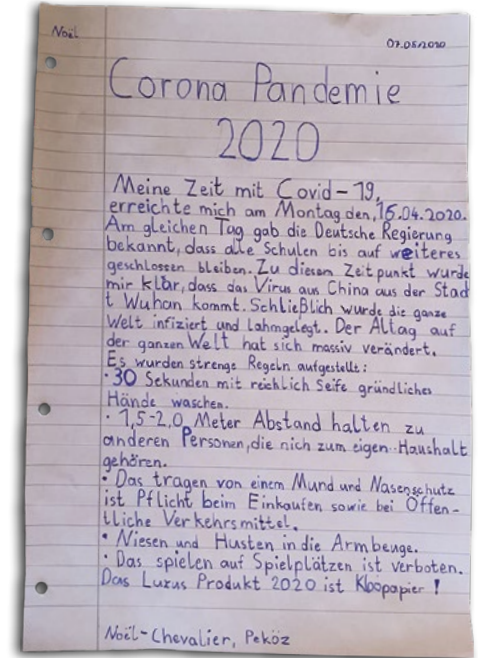 Noël
07.05.2020
Corona Pandemie
2020
Meine Zeit mit Covid-19,
erreichte mich am Montag den, 16.04.2020.
Am gleichen Tag gab die Deutsche Regierung
bekannt, dass alle Schulen bis auf weiteres
geschlossen bleiben. Zu diesem Zeitpunkt wurde
mir klar, dass das Virus aus China aus der Stad
t Wuhan kommt. Schließlich wurde die ganze
Welt infiziert und lahmgelegt. Der Alltag auf
der ganzen Welt hat sich massiv verändert.
Es wurden strenge Regeln aufgestellt:
· 30 Sekunden mit reichlich Seife gründliches
Hände waschen.
· 1,5-2,0 Meter Abstand halten zu
anderen Personen, die nich zum eigen Haushalt
gehören.
· Das tragen von einem Mund und Nasenschutz
ist Pflicht beim Einkaufen sowie bei Öffen-
tliche Verkehrsmittel.
· Niesen und Husten in die Armbeuge.
· Das spielen auf Spielplätzen ist verboten.
Das Luxus Produkt 2020 ist Kloopapier!
Noël-Chevalier, Peköz